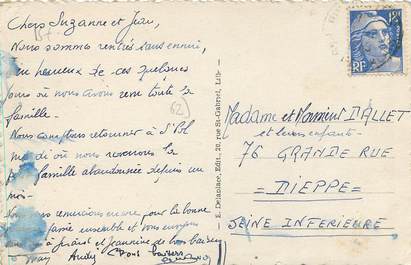 Chers Suzanne et Jean,
Nous sommes rentrés sans ennui,
heureux de ces quelques
jours où nous avons revu toute la
famille.
Nous comptons retourner à
où nous reverrons la
famille abandonnée depuis un
mois.
remercions encore pour la bonne
ensemble et vous envoyons
et Jeannine de bons baisers
André
62
E. Delaplace, Édit., 20, rue St-Gabriel, Lille
RF
Madame et Monsieur DALLET
et leurs enfants
76 GRANDE RUE
= DIEPPE =
SEINE INFERIEURE